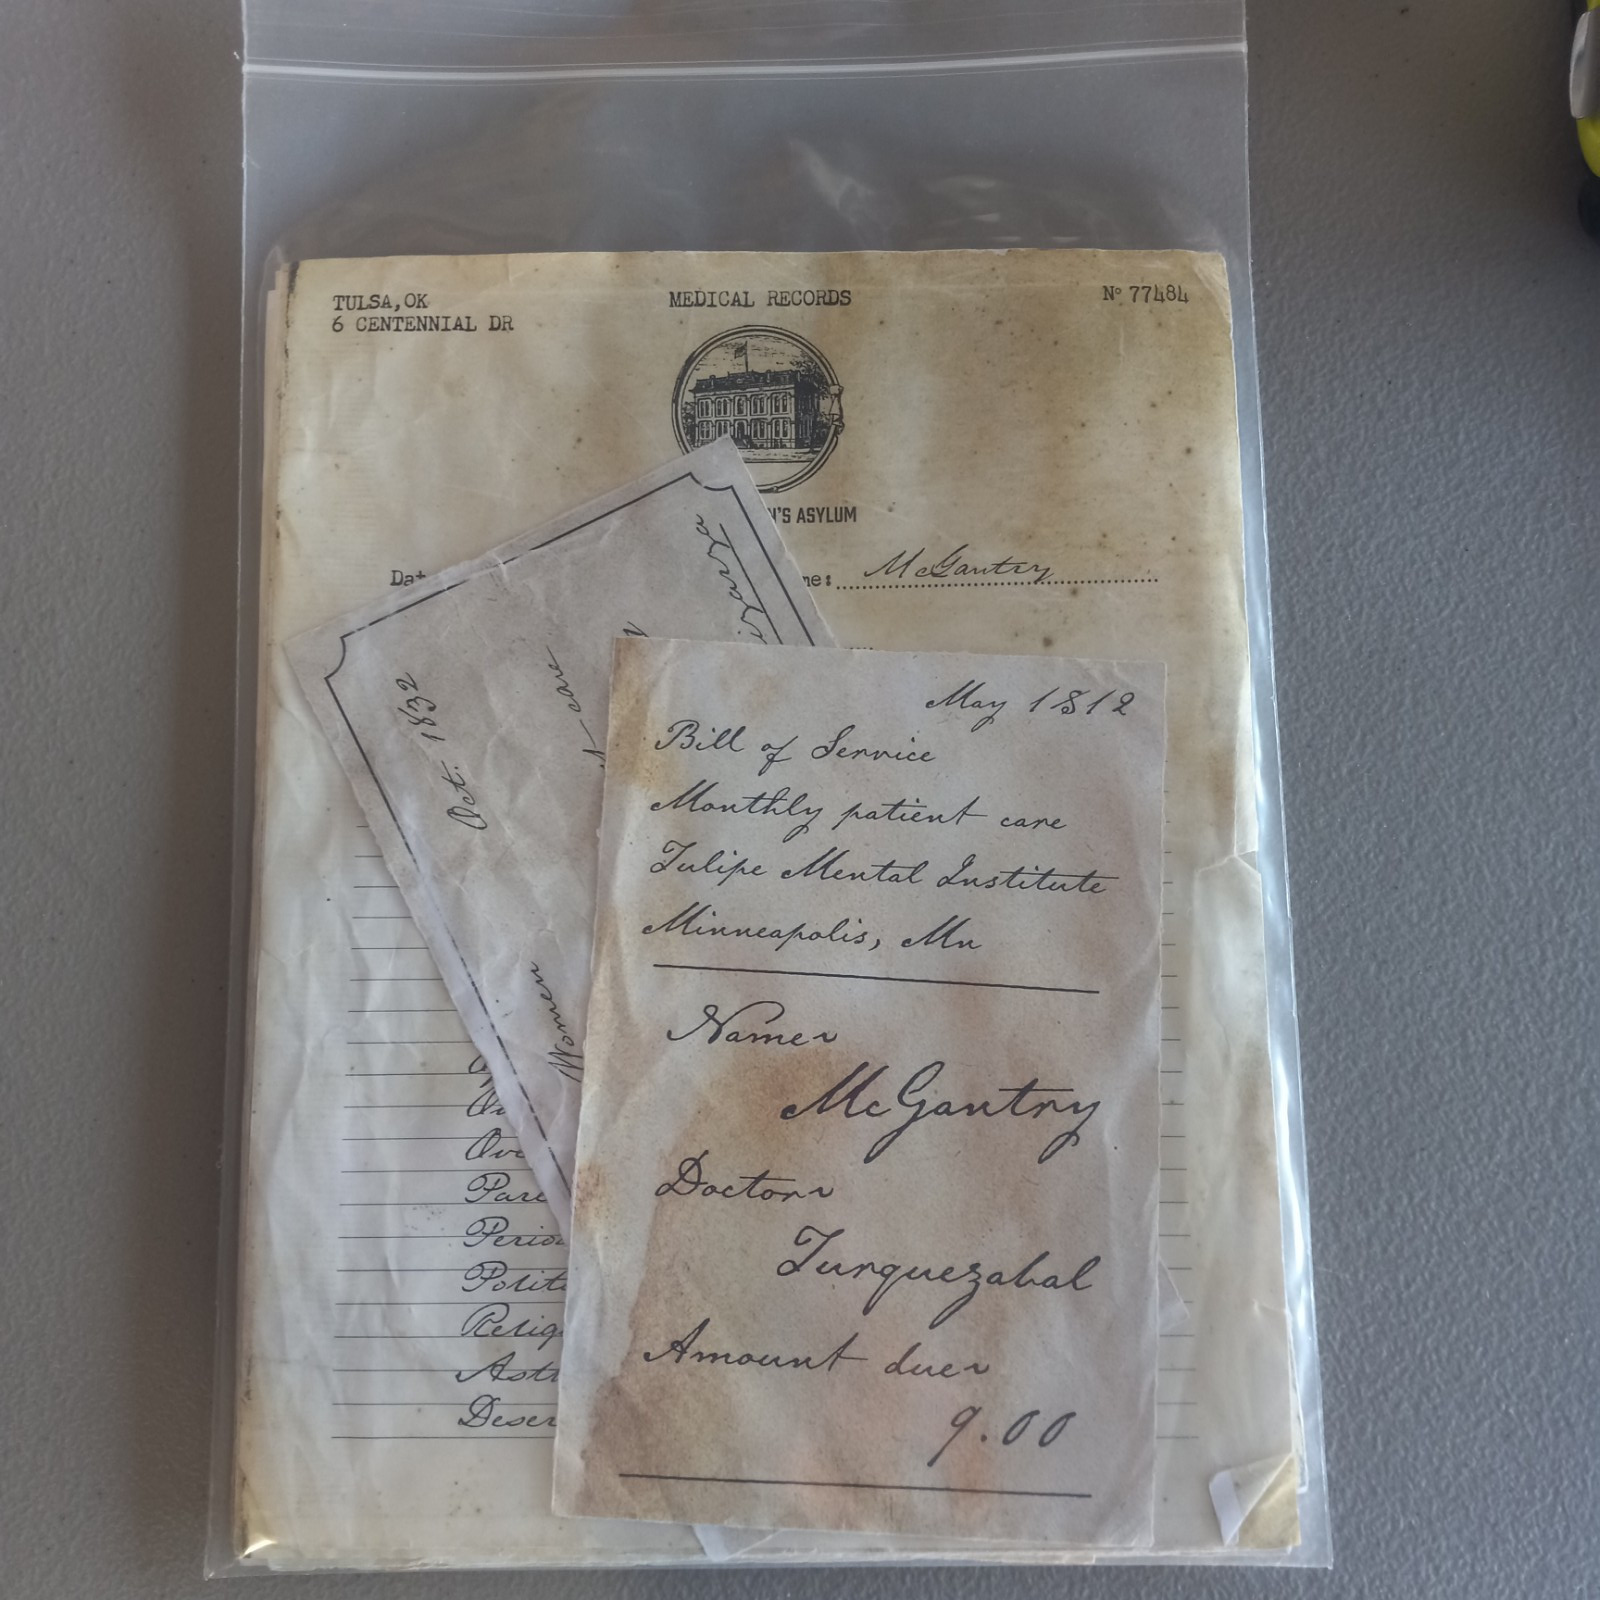 TULSA, OK
6 CENTENNIAL DR
MEDICAL RECORDS
Nº 77484
N'S ASYLUM
McGantry
Oct. 1832
care
Women
May 1812
Bill of Service
Monthly patient care
Tulipe Mental Institute
Minneapolis, Mn
Name~
McGantry
Doctor~
Turquezabal
Amount due~
9.00